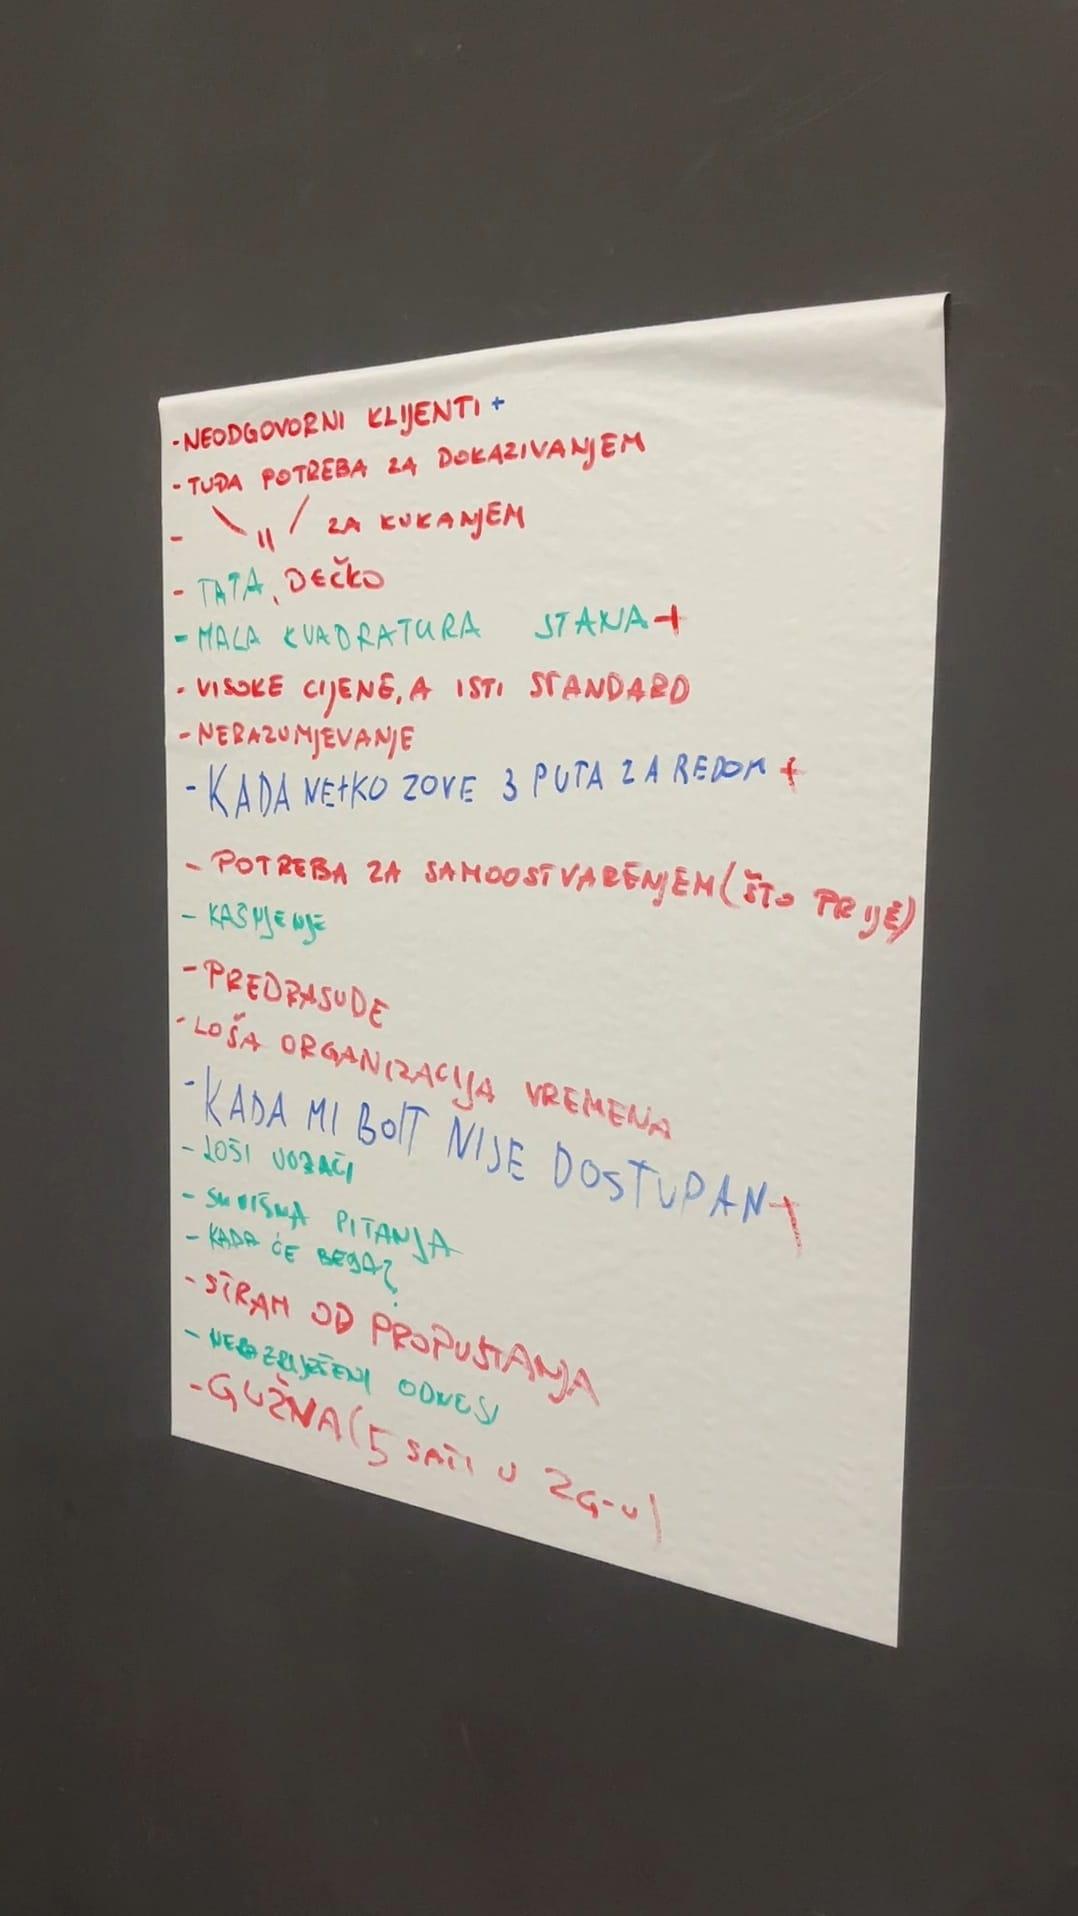 - NEODGOVORNI KLIJENTI +
- TUĐA POTREBA ZA DOKAZIVANJEM
- \ || / ZA KUKANJEM
- TATA, DEČKO
- MALA KVADRATURA STANA +
- VISOKE CIJENE, A ISTI STANDARD
- NERAZUMJEVANJE
- KADA NETKO ZOVE 3 PUTA ZA REDOM +
- POTREBA ZA SAMOOSTVARENJEM (ŠTO PRIJE)
- KAŠNJENJE
- PREDRASUDE
- LOŠA ORGANIZACIJA VREMENA
- KADA MI BOLT NIJE DOSTUPAN +
- LOŠI VOZAČI
- SUVIŠNA PITANJA
- KADA ĆE BEBA?
- STRAH OD PROPUŠTANJA
- NERAZRIJEŠENI ODNOSI
- GUŽNA (5 SATI U ZG-U)